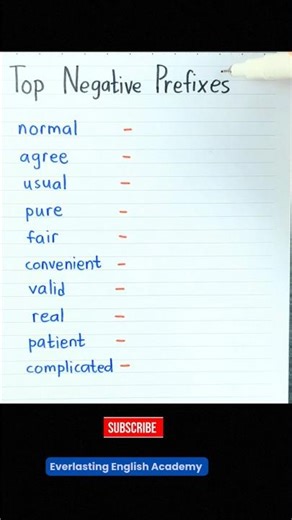 Top Negative Prefixes
normal -
agree -
usual -
pure -
fair -
convenient -
valid -
real -
patient -
complicated -
SUBSCRIBE
Everlasting English Academy